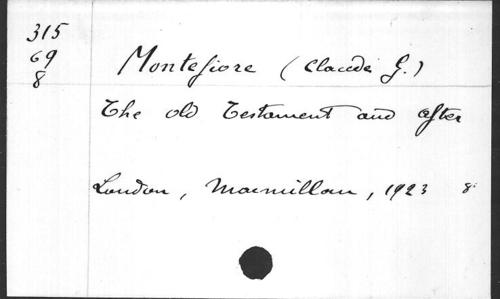 315
69
8
Montefiore (Claude G.)
The old Testament and after
London, Macmillan, 1923 8°